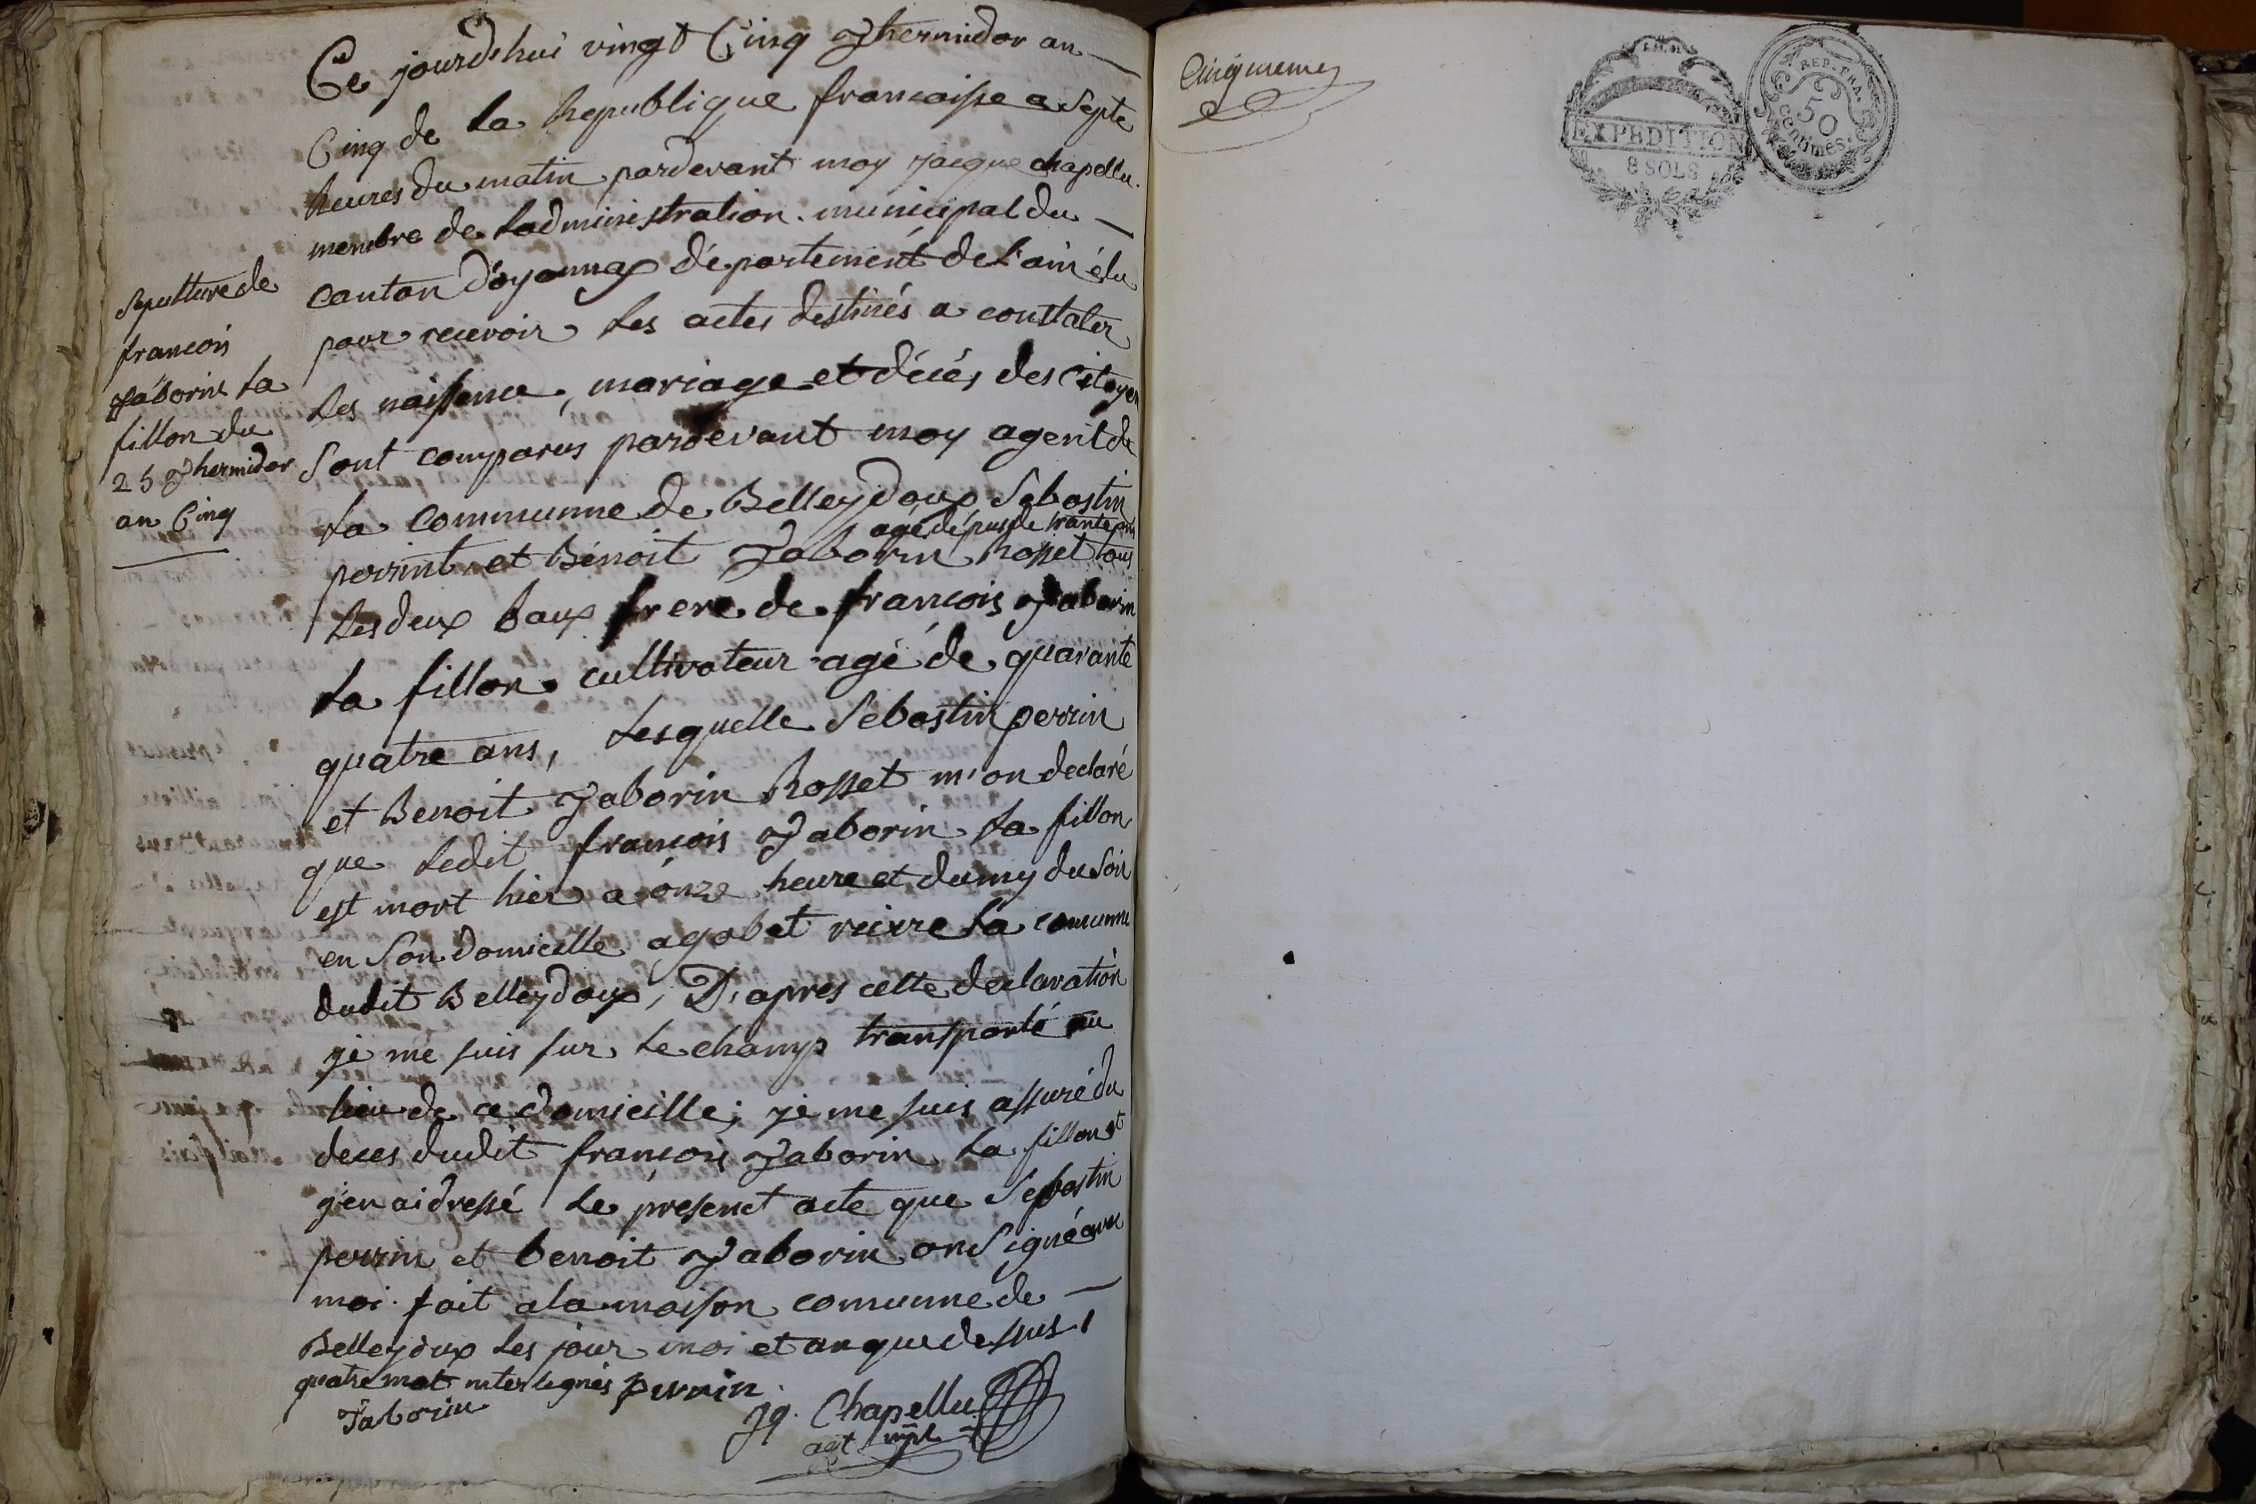 Ce jourd'hui vingt Cinq Thermidor an
Cinq de la Republique francaise a Septe
heures du matin pardevant moy jacque chapellu
membre de Ladministration municipal du
canton D'oyonnax département de L'ain élu
pour recevoir Les actes destinés a constater
Les naissence, mariage et décés des Citoyen
Sont comparus pardevant moy agent de
La Communne de Belleydoux Sebastin
agé dépus de trante
perrint et Bénoit Taborin Rosset tous
Les deux baux frere de francois Taborin
La fillon cultivateur agé de quarante
quatre ans, Lesquelle Sebastin perrin
et Benoit Taborin Rosset m'on declaré
que Ledit francois Taborin La fillon
est mort hier a onze heure et dumy du Soir
en Son domicille agobet la comunne
dudit Belleydoux, D'apres cette declaration
je me suis sur Le champ transporté au
lieu de ce domicille; je me suis assuré du
deces dudit francois Taborin La fillon et
j'en ai dressé Le present acte que Sebastin
perrin et benoit Taborin on Signé avec
moi. fait a la maison comunne de
Belleydoux Les jour moi et an que dessus
quatre mot interlegnés perrin
Taborin
Jq. Chapellu
agt mpl
Sepulture de
francois
Taborin La
fillon du
25 Thermidor
an Cinq
Cinquieme
EXPEDITION
8 SOLS
REP. FRA.
50
centimes